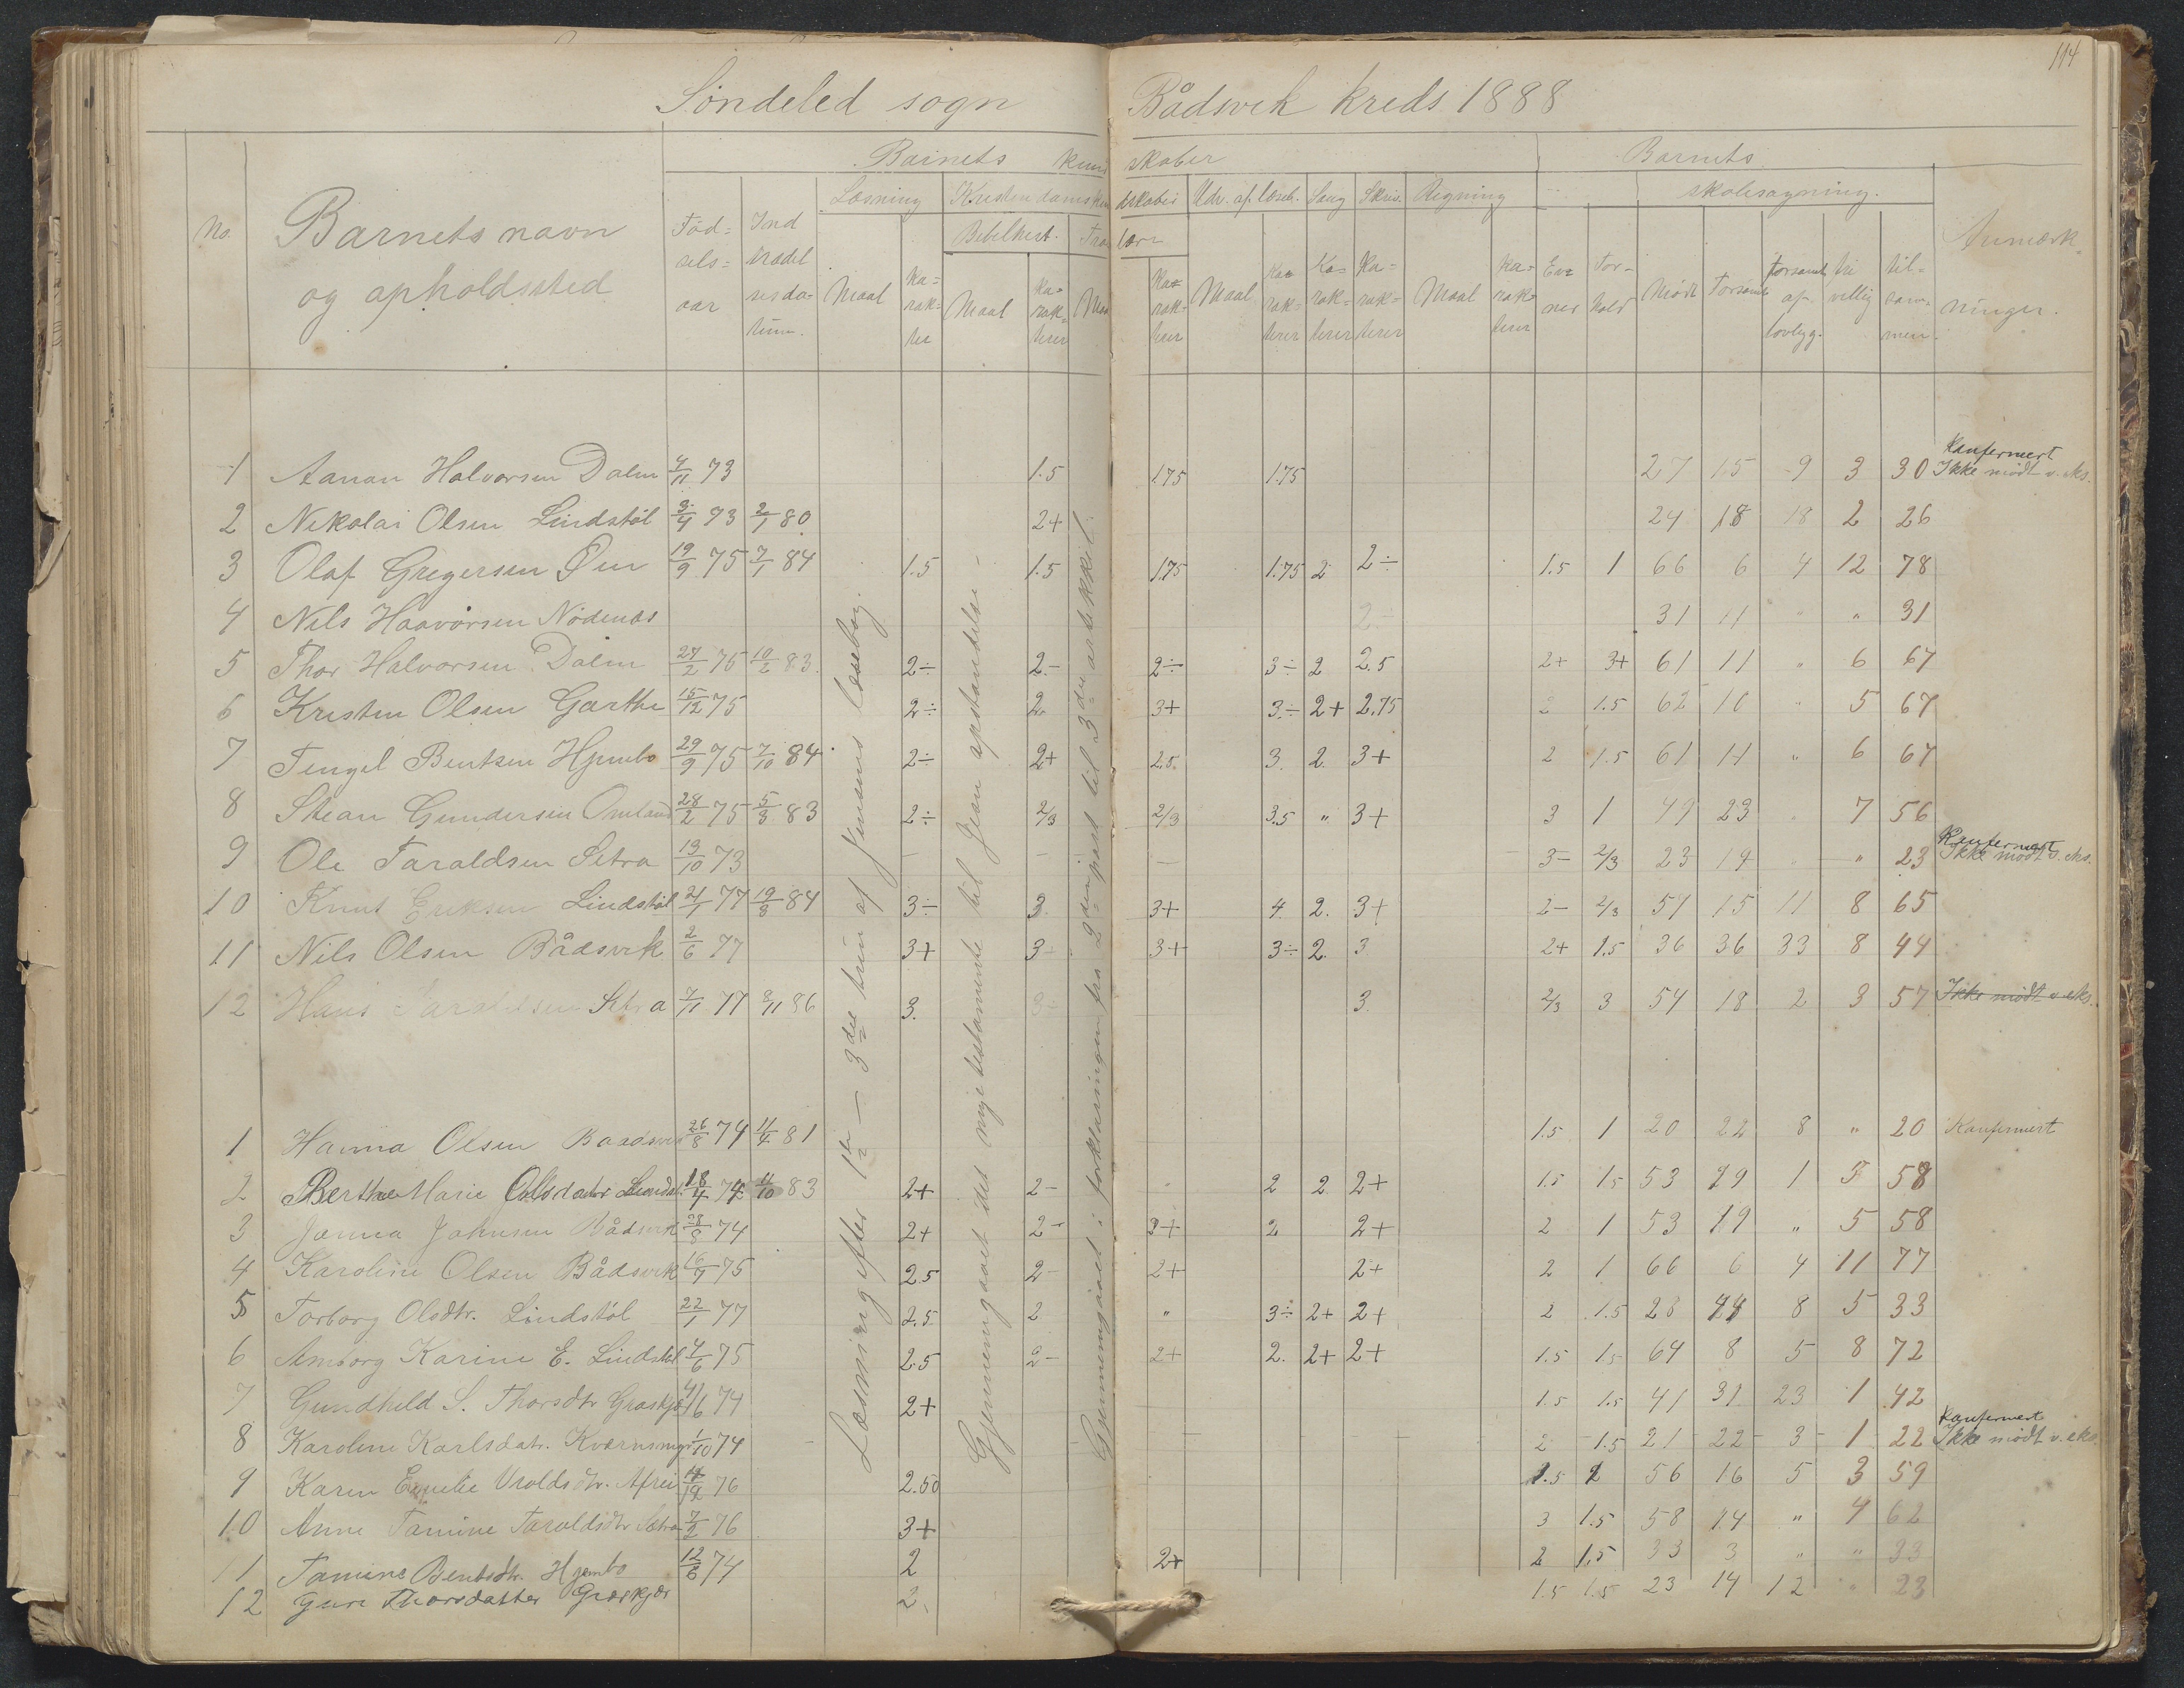 114
Søndeled sogn Bådsvik kreds 1888
Barnets kundskaber Barnets
Læsning Kristendomskundskaber Udv. af læseb. Sang Skriv. Regning skolesøgning.
No. Barnets navn og opholdssted
Fødselsaar
Indtrædelsesdatum.
Bibelhist. Troeslære
Maal Karakter Maal Karakterer Maal Karakterer Maal Karakterer Karakterer Karakterer Maal Karakterer
Evner Forhold Mødt Forsømt forsømt af lovlyg. frivillig tilsammen. Anmærkninger.
Læsning efter 1ste — 3die trin af Jensens læsebog.
Gjennemgaaet det nye testamente til Jesu opstandelse
Gjennemgaaet i forklaringen fra 2den part til 3die artikkel.
1 Aanon Halvorsen Dalen 4/11 73 1.5 1.75 1.75 27 15 9 3 30 Konfermert Ikke mødt v. eks.
2 Nikolai Olsen Lindstøl 3/4 73 2/1 80 2+ 24 18 18 2 26
3 Olaf Gregersen Øen 19/9 75 7/1 84 1.5 1.5 1.75 1.75 2 2÷ 1.5 1 66 6 4 12 78
4 Nils Haavorsen Nødenæs 2- 31 11 " " 31
5 Thor Halvorsen Dalen 24/2 76 10/2 83 2÷ 2- 2÷ 3÷ 2 2.5 2+ 3+ 61 11 " 6 67
6 Kristen Olsen Garthe 15/12 75 2÷ 2. 3+ 3÷ 2+ 2.75 2 1.5 62 10 " 5 67
7 Tengel Bentsen Hjembo 29/9 75 7/10 84 2÷ 2+ 2.5. 3. 2. 3+ 2 1.5 61 11 " 6 67
8 Stean Gundersen Omland 28/2 75 5/3 83 2÷ 2/3 2/3 3.5 " 3+ 3 1 49 23 " 7 56
9 Ole Taraldsen Setra 13/10 73 — — — 3- 2/3 23 19 " " 23 Konfermert Ikke mødt v. eks.
10 Knut Eriksen Lindstøl 21/1 77 19/8 84 3÷ 3. 3+ 4 2. 3+ 2- 2/3 57 15 11 8 65
11 Nils Olsen Bådsvik 2/6 77 3+ 3- 3+ 3÷ 2. 3 2+ 1.5 36 36 33 8 44
12 Hans Taraldsen Setra 7/11 77 8/11 86 3. 3- 3. 2/3 3 54 18 2 3 57 Ikke mødt v. eks.
1 Hanna Olsen Baadsvik 26/8 74 11/4 81 1.5 1 20 22 8 " 20 Konfermert
2 Berthe Marie Olsdatter Lindst. 18/4 74 11/10 83 2+ 2- " 2 2 2+ 1.5 1.5 53 19 1 5 58
3 Janna Johnsen Bådsvik 28/8 74 2+ 2- 2+ 2 2+ 2 1 53 19 " 5 58
4 Karoline Olsen Bådsvik 16/7 75 2.5 2- 2+ 2+ 2 1 66 6 4 11 77
5 Torborg Olsdtr. Lindstøl 22/1 77 2.5 2 " 3÷ 2+ 2+ 2 1.5 28 44 8 5 33
6 Amborg Karine E. Lindstøl 4/6 75 2.5 2- 2+ 2. 2+ 2+ 1.5 1.5 64 8 5 8 72
7 Gundhild S. Thorsdtr Græskjær 4/6 74 2+ 1.5 1.5 41 31 23 1 42
8 Karoline Karlsdatr. Kværnmyr 1/10 74 2 1.5 21 22 3 1 22 Konfermert Ikke mødt v. eks.
9 Karen Emelie Uroldsdtr. 76 2.50 1.5 2 56 16 5 3 59
10 Anne Tamine Taroldsdtr Setra 7/2 76 3+ 3 1.5 58 14 " 4 62
11 Tamine Bentsdtr. Hjembo 12/8 74 2 2+ 2 1.5 33 3 " " 33
12 Gure Thorsdatter Græskjær 2. 1.5 1.5 23 14 12 " 23